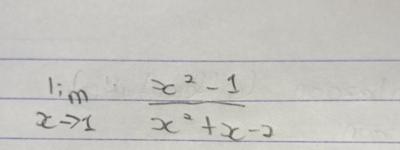 lim x→1 (x² - 1)/(x² + x - 2)